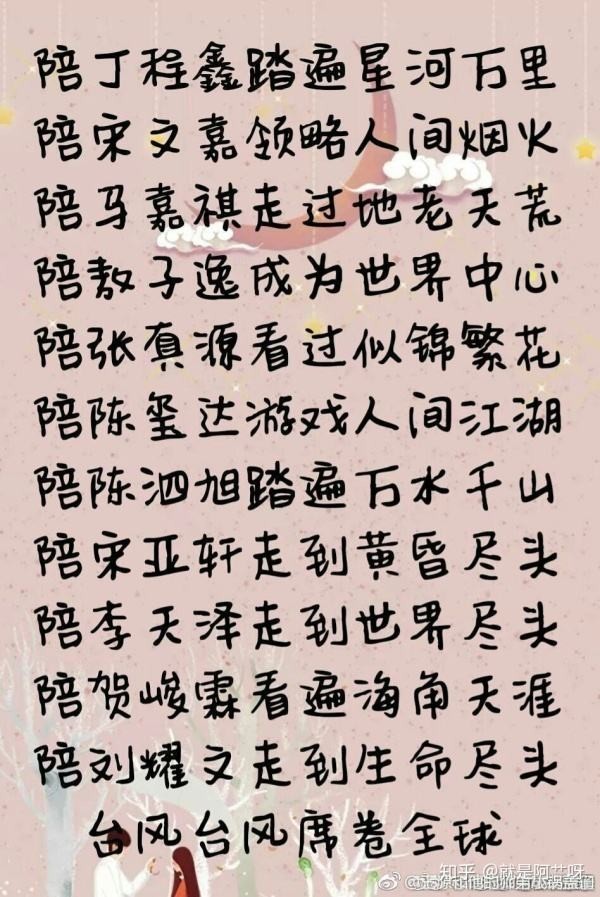 陪丁程鑫踏遍星河万里
陪宋文嘉领略人间烟火
陪马嘉祺走过地老天荒
陪敖子逸成为世界中心
陪张真源看过似锦繁花
陪陈玺达游戏人间江湖
陪陈泗旭踏遍万水千山
陪宋亚轩走到黄昏尽头
陪李天泽走到世界尽头
陪贺峻霖看遍海角天涯
陪刘耀文走到生命尽头
台风台风席卷全球
知乎 @就是阿苡呀